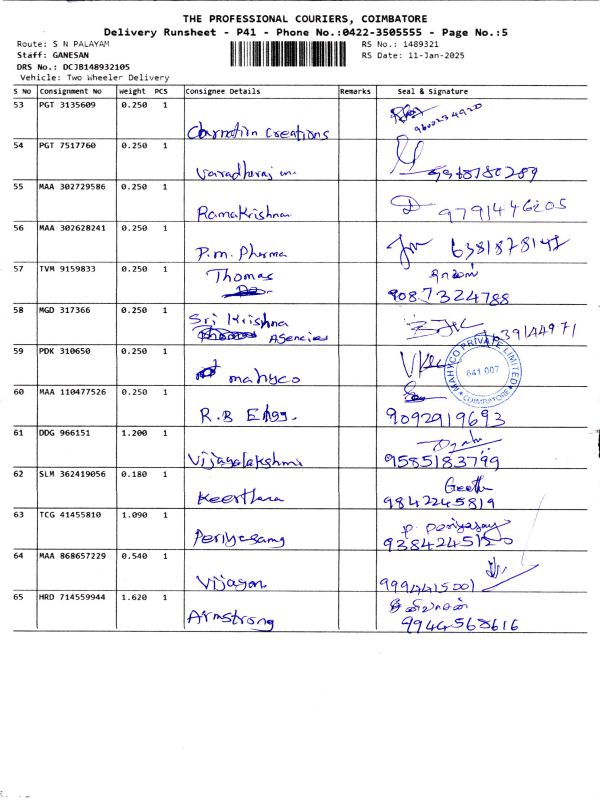 THE PROFESSIONAL COURIERS, COIMBATORE
Delivery Runsheet - P41 - Phone No.:0422-3505555 - Page No.:5
Route: S N PALAYAM
RS No.: 1489321
Staff: GANESAN
RS Date: 11-Jan-2025
DRS No.: DCJB148932105
Vehicle: Two Wheeler Delivery
S No Consignment No Weight PCS Consignee Details Remarks Seal & Signature
53 PGT 3135609 0.250 1
Carnation Creations 9600234920
54 PGT 7517760 0.250 1
Varadharaj 9968780289
55 MAA 302729586 0.250 1
Ramakrishnan 9791446205
56 MAA 302628241 0.250 1
P.m. Pharma 6381878147
57 TVM 9159833 0.250 1
Thomas
9087324788
58 MGD 317366 0.250 1
Sri Krishna
Agencies
59 PDK 310650 0.250 1
mahyco
MAHYCO PRIVATE LIMITED
641 007
COIMBATORE
60 MAA 110477526 0.250 1
R.B Engg. 9092919693
61 DDG 966151 1.200 1
Vijayalakshmi 9585183799
62 SLM 362419056 0.180 1
Geetha
Keerthana 9842245819
63 TCG 41455810 1.090 1
P. Periyasamy
Periyasamy 9384245120
64 MAA 868657229 0.540 1
Vijayan 9994415001
65 HRD 714559944 1.620 1
Armstrong 9944568616